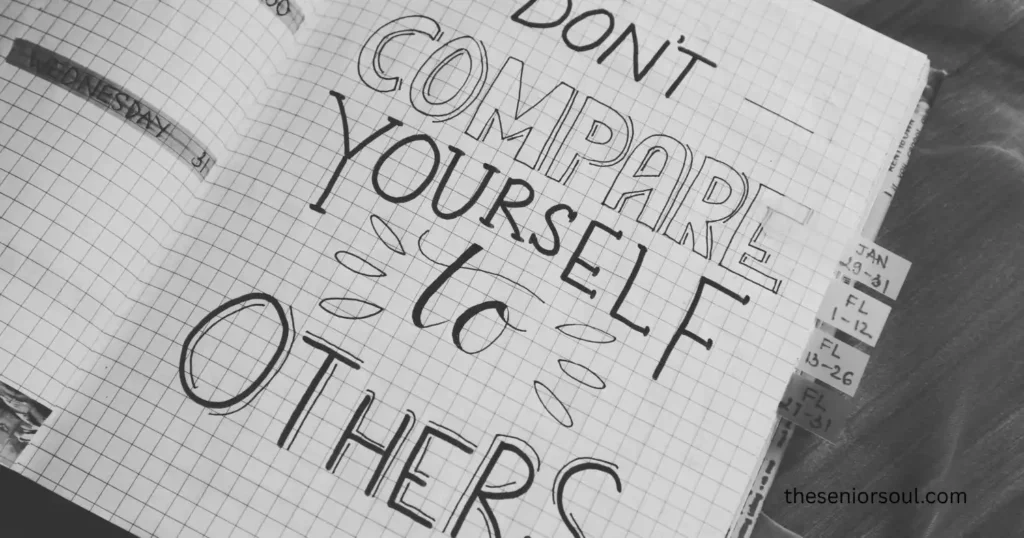 WEDNESDAY
31
DON'T
COMPARE
YOURSELF
to
OTHERS
JAN
29-31
FL
1-12
FL
13-26
FL
27-31
theseniorsoul.com